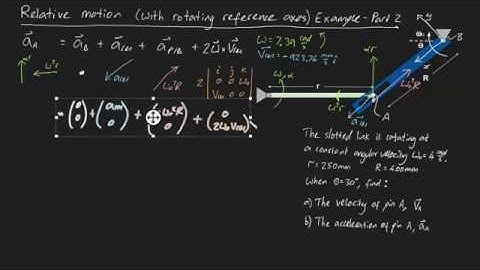 Relative motion (with rotating reference axes) Example - Part 2
a_A = a_B + a_rel + a_P/B + 2ω̄ × V_rel
ω = 2.39 rad/s
V_rel = -923.76 mm/s
i j k
2 0 0 ω_b
V_rel 0 0
(0 0) + (a_rel 0) + (ω_b²R 0) + (0 2ω_b V_rel)
ω²r
a_rel
ω_b²R
ω, α
r
αr
ω²r
A
B
R
a_rel
R y
θ
The slotted link is rotating at
a constant angular velocity ω_b = 4 rad/s.
r = 250mm R = 400mm
When θ = 30°, find:
a) The velocity of pin A, v̄_A
b) The acceleration of pin A, ā_A